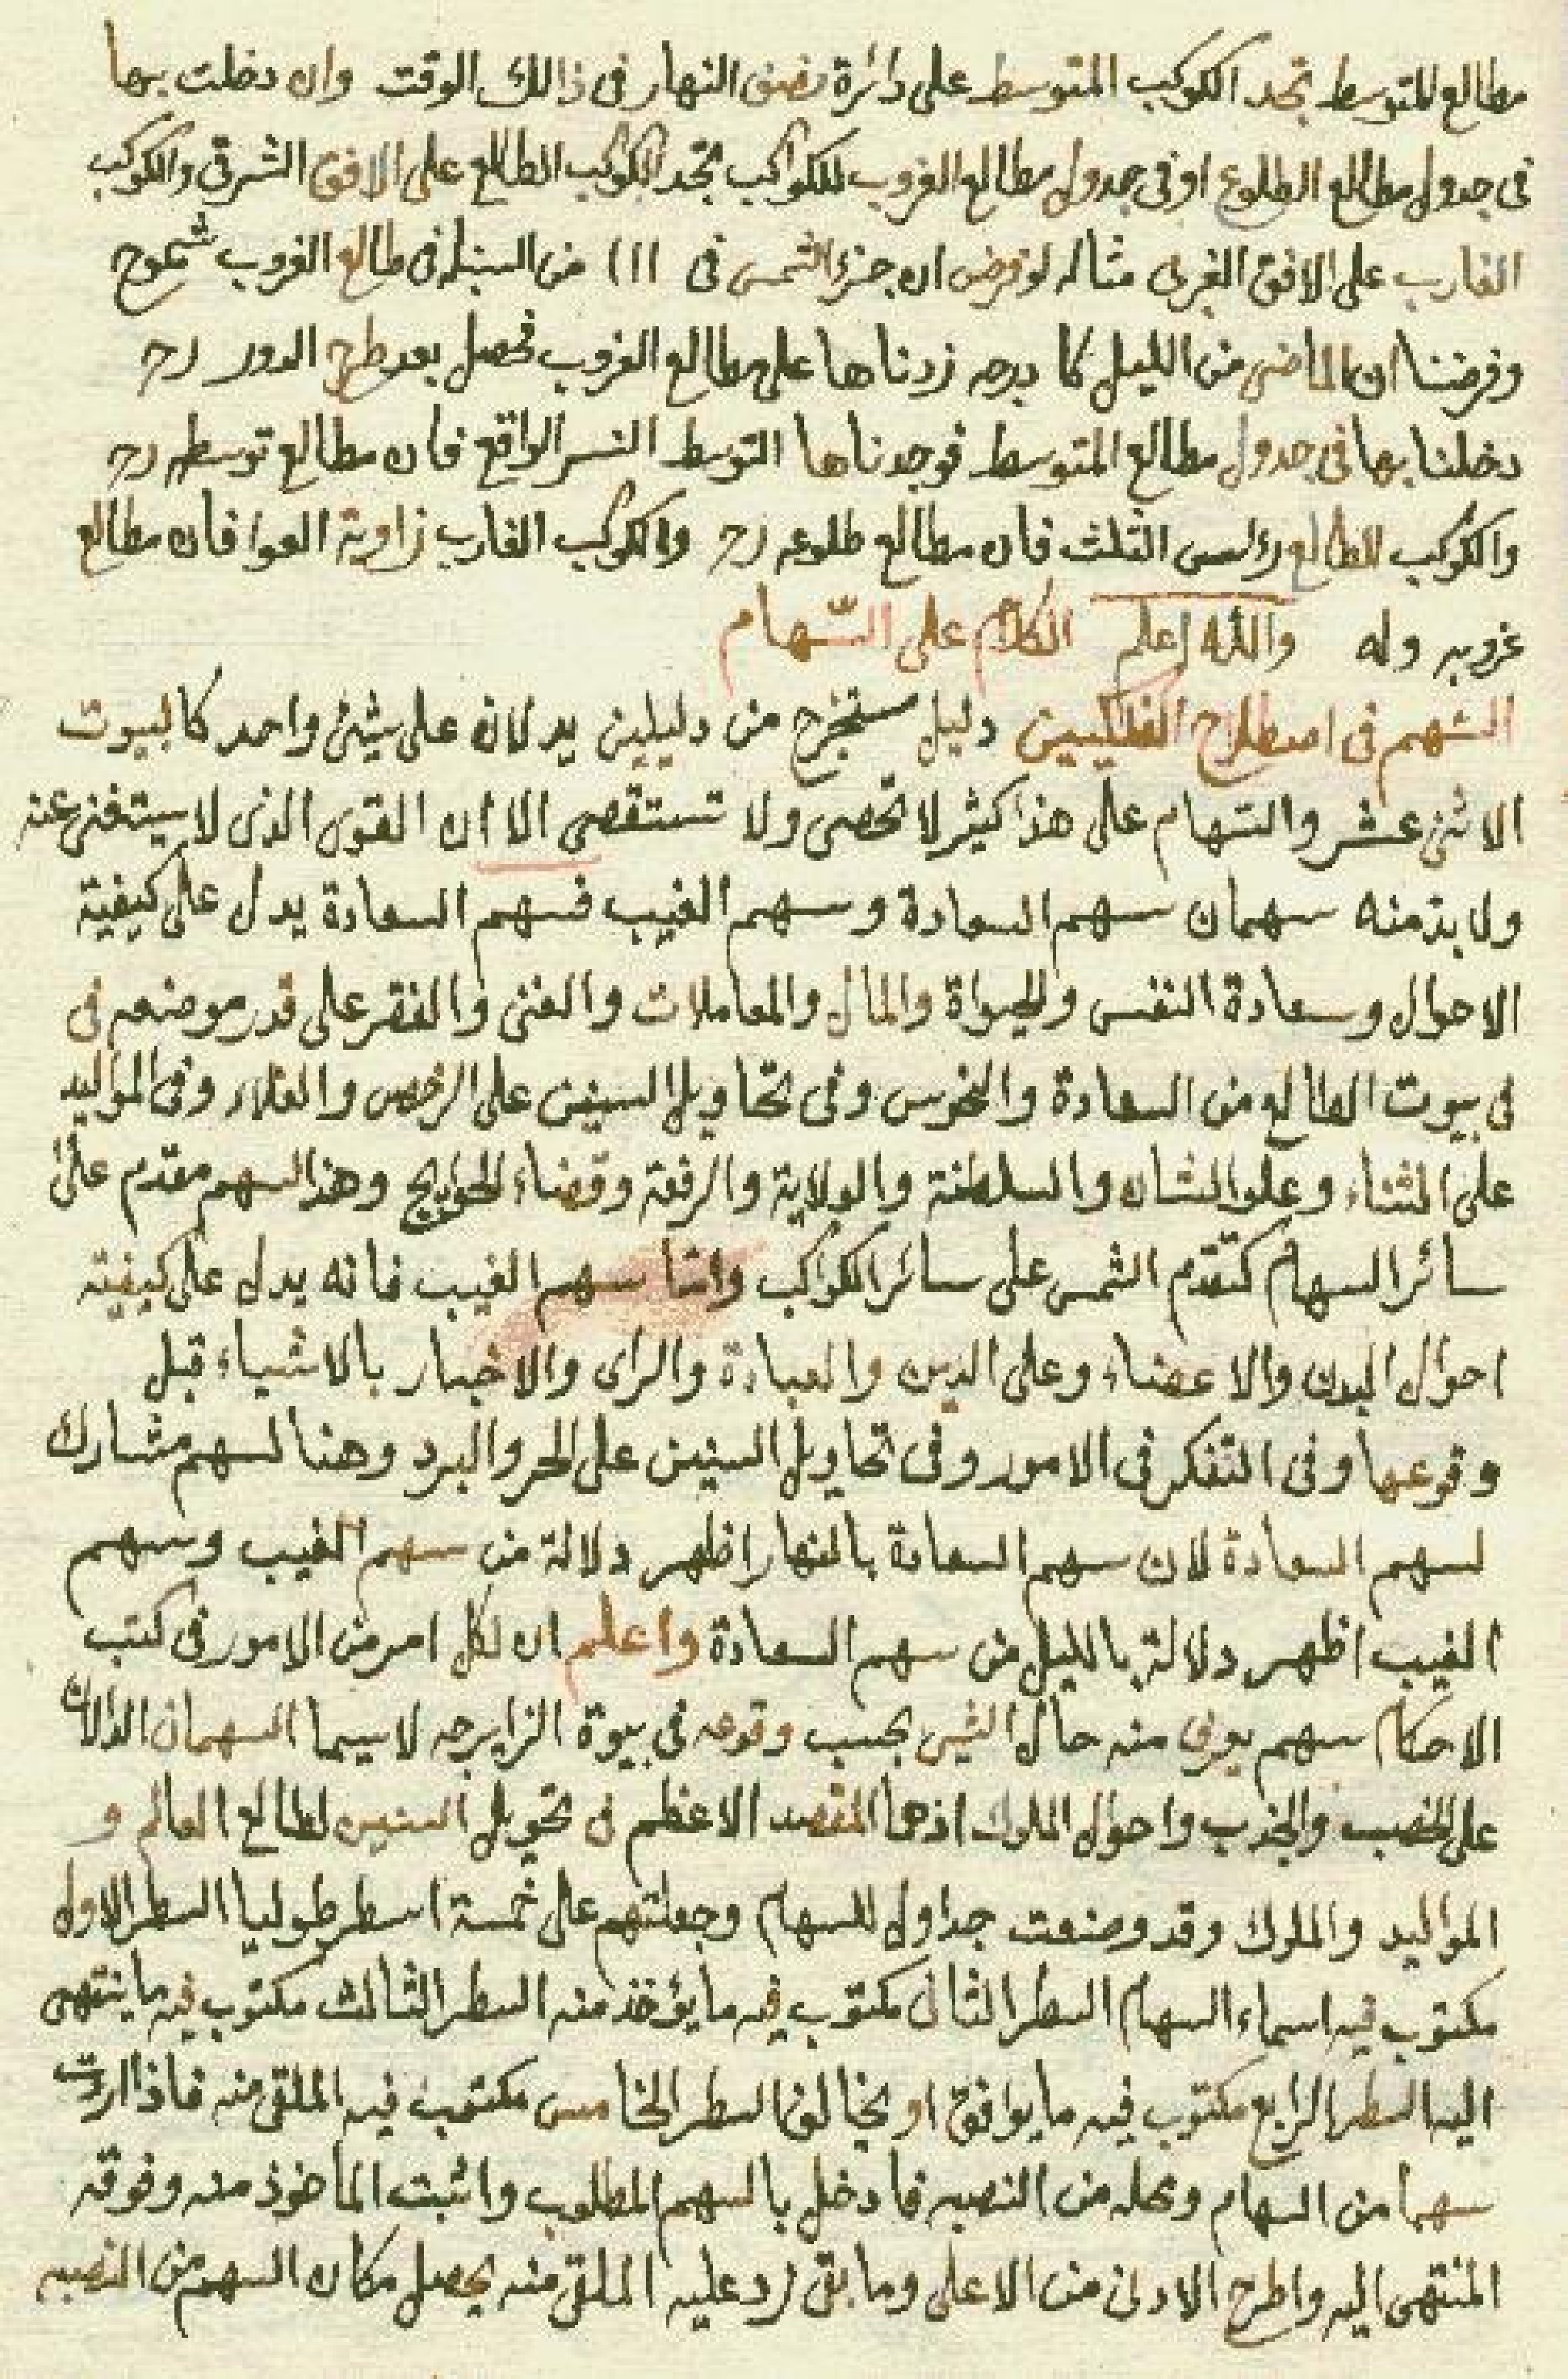 مطالع المتوسط تجد الكوكب المتوسط على دائرة نصف النهار فى ذالك الوقت وان دخلت بها
فى جدول مطالع الطلوع او فى جدول مطالع الغروب للكواكب تجد الكوكب الطالع على الافق الشرقى والكوكب
الغارب على الافق الغربى مثاله لو فرض ان جزء الشمس فى من السنبله فى طالع الغروب
وفرضنا ان الماضى من الليل كا درجه زدناها على مطالع الغروب فحصل بعد طرح الدور رح
دخلنا بها فى جدول مطالع المتوسط فوجدناها التوسط النسر الواقع فان مطالع توسطه رح
والكوكب الطالع راس الثلث فان مطالع طلوعه رح والكوكب الغارب زاوية العوا فان مطالع
غروبه وله والله اعلم الكلام على السّهام
السهم فى اصطلاح الفلكيين دليل مستخرج من دليلين يدلان على شيئ واحد كالبيوت
الاثنى عشر والسهام على هذا كثير لا تحصى ولا تستقصى الا ان القوى الذى لا يستغنى عنه
ولا بد منه سهمان سهم السعادة وسهم الغيب فسهم السعادة يدل على كيفية
الاحوال وسعادة النفس والحيواة والمال والمعاملات والغنى والفقر على قدر موضعه فى
فى بيوت الطالع من السعادة والنحوس وفى تحاويل السنين على الرخص والغلاء وفى المواليد
على الثناء وعلو الشان والسلطنة والولاية والرفعة وقضاء الحوايج وهذا السهم مقدم على
سائر السهام كتقدم الشمس على سائر الكواكب واما سهم الغيب فانه يدل على كيفية
احوال البدن والاعضاء وعلى الدين والعبادة والراى والاخبار بالاشياء قبل
وقوعها وفى التفكر فى الامور وفى تحاويل السنين على الحر والبرد وهنا لسهم مشارك
لسهم السعادة لان سهم السعادة بالنهار اظهر دلالة من سهم الغيب وسهم
الغيب اظهر دلالة بالليل من سهم السعادة واعلم ان لكل امر من الامور فى كتب
الاحكام سهم يعرف منه حال الشيئ بحسب وقوعه فى بيوة الزايرجه لاسيما السهمان الدالان
على الخصب والجذب واحوال الملوك اذ هما المقصد الاعظم فى تحويل السنين لطالع العالم و
المواليد والملوك وقد وضعت جداول للسهام وجعلتهم على خمسة اسطر طوليا السطر الاول
مكتوب فيه اسماء السهام السطر الثانى مكتوب فيه ما يؤخذ منه السطر الثالث مكتوب فيه ما ينتهى
اليه السطر الرابع مكتوب فيه ما يوافق او يخالف السطر الخامس مكتوب فيه الملقى منه فاذا اردت
سهما من السهام ومحله من النصبه فادخل بالسهم المطلوب واثبت الماخوذ منه وفوقه
المنتهى اليه واطرح الادنى من الاعلى وما بقى زد عليه الملقى منه يحصل مكان السهم من النصبه